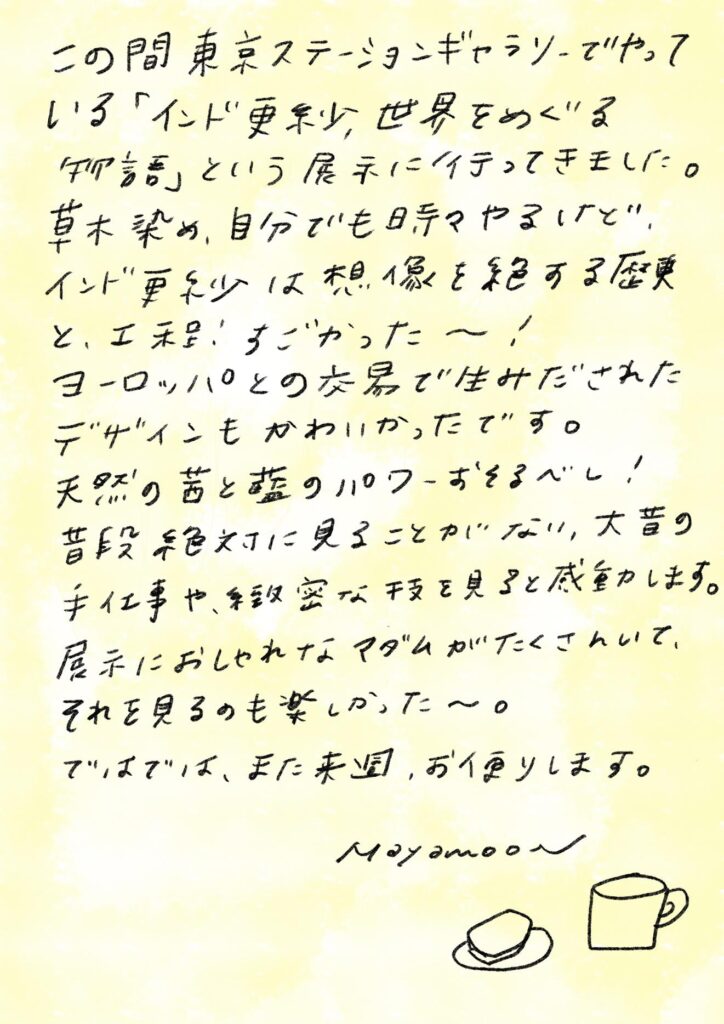 この間東京ステーションギャラリーでやって
いる「インド更紗、世界をめぐる
物語」という展示に行ってきました。
草木染め、自分でも時々やるけど、
インド更紗は想像を絶する歴史
と、工程!すごかった〜!
ヨーロッパとの交易で生みだされた
デザインもかわいかったです。
天然の茜と藍のパワーおそるべし!
普段絶対に見ることがない、大昔の
手仕事や、緻密な技を見ると感動します。
展示におしゃれなマダムがたくさんいて、
それを見るのも楽しかった〜。
ではでは、また来週、お便りします。
Mayamoon